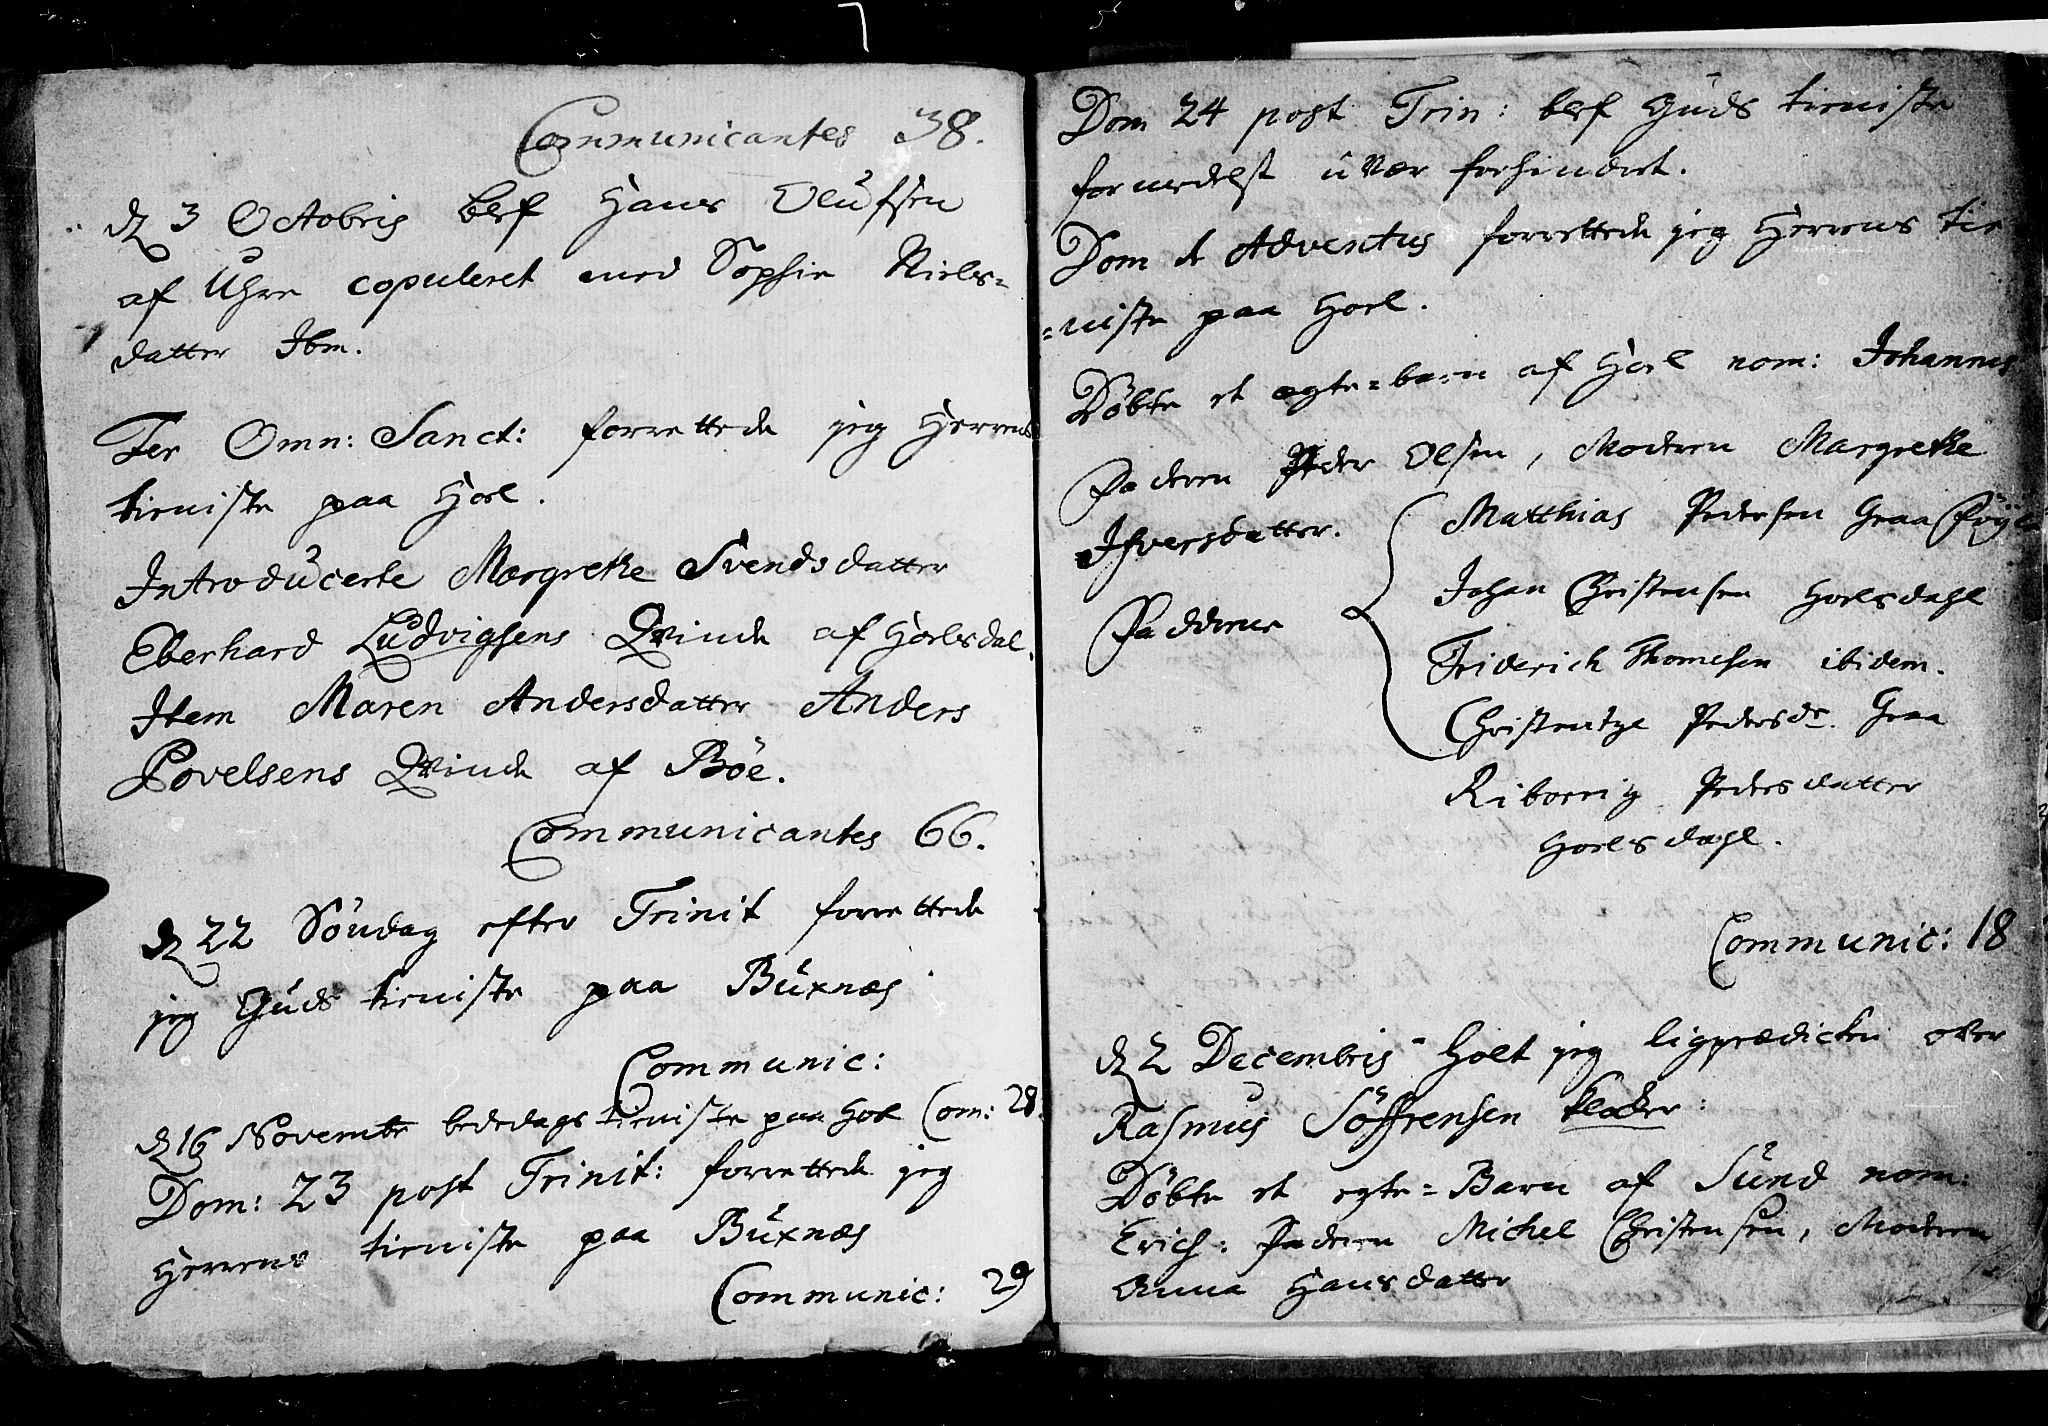 Communicantes 38.
d 3 Octobris blef Hans Olufsen
af Uhre copuleret med Sophie Niels=
datter Ibm.
Fer Omn: Sanct: forrettede jeg Herrens
tieniste paa Hoel.
Introducerte Margrethe Svendsdatter
Eberhard Ludvigsens Qvinde af Hoelsdal.
Item Maren Andersdatter Anders
Povelsens Qvinde af Böe.
Communicantes 66.
d 22 Söndag efter Trinit forrettede
jeg Guds tieniste paa Buxnæs
Communic:
d 16 Novembr bededags tieniste paa Hoel Com: 28.
Dom: 23 post Trinit: forrettede jeg
Herrens tieniste paa Buxnæs
Communic: 29
Dom 24 post Trin: blef Guds tieniste
formedelst uvær forhindret.
Dom 1 Adventus forrettede jeg Herrens tie
=niste paa Hoel.
Döbte et ægte=barn af Hoel nom: Johannes
Faderen Peder Olsen, Moderen Margrethe
Ifversdatter.
Fadderne
Matthias Pedersen Graa
Johan Christensen Hoelsdahl
Friderich Thomesen ibidem.
Christentze Pedersdr. Graa
Riborrig Pedersdatter
Hoelsdahl.
Communic: 18
d 2 Decembris holt jeg ligprædicken over
Rasmus Söffrensen klocker:
Döbte et egte=Barn af Sund nom:
Erich: Faderen Michel Christensen, Moderen
Anna Hansdatter